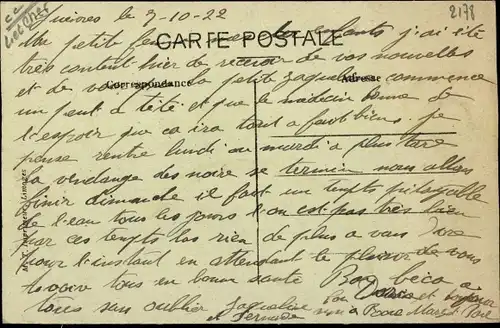 2178
le 7-10-22
CARTE POSTALE
Ma petite j'ai été
très content hier de recevoir de vos nouvelles
Correspondance
Adresse
et de la petite Jaqueline commence
un peut a tété et que le médecin donne de
l'espoir que ça ira tout a fait bien. je
pense rentre lundi ou mardi a plus tare
la vendange des noire se termin nous allon
finir dimanche il fait un temps
de l'eau tous les jours l'on est pas très bien
par ces temps la rien de plus a vous dire
pour l'instant en attendant le plaisir de vous
revoir tous en bonne santé Bon beco a
tous san oublier Jaqueline
et
Limoges